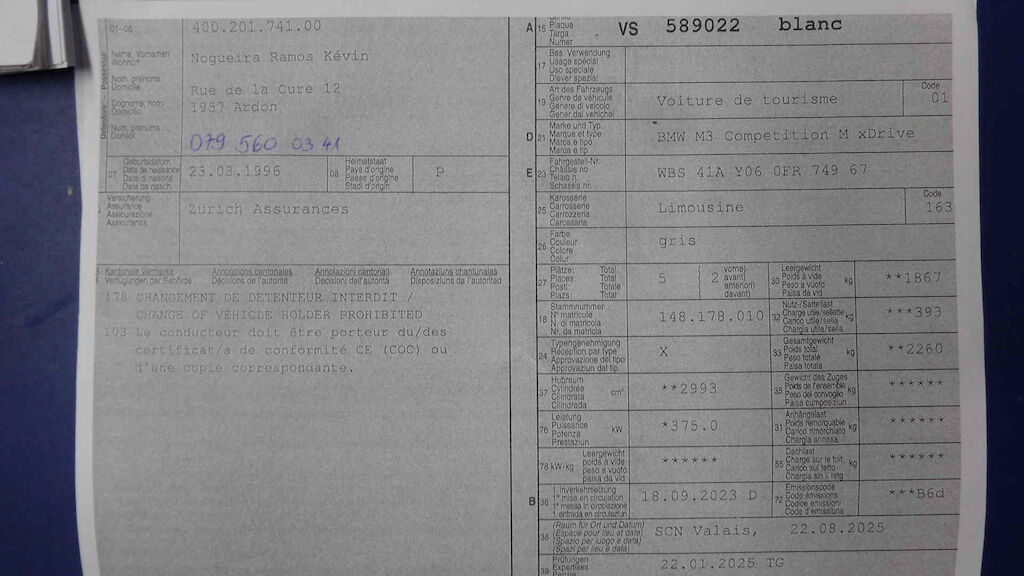 01-06
400.201.741.00
Name, Vornamen
Wohnort
Nom, prénoms
Domicile
Cognome, nomi
Domicilio
Num, prenums
Domicil
Nogueira Ramos Kévin
Rue de la Cure 12
1957 Ardon
079 560 03 41
07
Geburtsdatum
Date de naissance
Data di nascita
Data da nasch.
23.03.1996
08
Heimatstaat
Pays d'origine
Paese d'origine
Stadi d'origin
P
Versicherung
Assurance
Assicurazione
Assicuranza
Zürich Assurances
Kantonale Vermerke
Verfügungen der Behörde
Annotations cantonales
Décisions de l'autorité
Annotazioni cantonali
Decisioni dell'autorità
Annotaziuns chantunalas
Disposiziuns da l'autoritad
178 CHANGEMENT DE DETENTEUR INTERDIT /
CHANGE OF VEHICLE HOLDER PROHIBITED
193 Le conducteur doit être porteur du/des
certificat/s de conformité CE (COC) ou
d'une copie correspondante.
A
15
Plaque
Targa
Numer
VS 589022 blanc
17
Bes. Verwendung
Usage spécial
Uso speciale
Diever spezial
19
Art des Fahrzeugs
Genre de véhicule
Genere di veicolo
Gener dal vehichel
Voiture de tourisme
Code
01
D
21
Marke und Typ
Marque et type
Marca e tipo
Marca e tip
BMW M3 Competition M xDrive
E
23
Fahrgestell-Nr.
Châssis no
Telaio n.
Schassis nr.
WBS 41A Y06 0FR 749 67
25
Karosserie
Carrosserie
Carrozzeria
Carossaria
Limousine
Code
163
26
Farbe
Couleur
Colore
Colur
gris
27
Plätze: Total
Places: Total
Posti: Totale
Plazs: Total
5 ( 2
vorne)
avant)
anteriori)
davant)
30
Leergewicht
Poids à vide
Peso a vuoto
Paisa da vid
kg
**1867
18
Stammnummer
N° matricule
N. di matricola
Nr. da matricla
148.178.010
32
Nutz-/Sattellast
Charge utile/sellette
Carico utile/sella
Chargia utila/sella
kg
***393
24
Typengenehmigung
Réception par type
Approvazione del tipo
Approvaziun dal tip
X
33
Gesamtgewicht
Poids total
Peso totale
Paisa totala
kg
**2260
37
Hubraum
Cylindrée
Cilindrata
Cilindrada
cm³
**2993
35
Gewicht des Zuges
Poids de l'ensemble
Peso del convoglio
Paisa cumposiziun
kg
******
76
Leistung
Puissance
Potenza
Prestaziun
kW
*375.0
31
Anhängelast
Poids remorquable
Carico rimorchiato
Chargia annexa
kg
******
78 kW/kg
Leergewicht
poids à vide
peso a vuoto
paisa da vid
******
55
Dachlast
Charge sur le toit
Carico sul tetto
Chargia sin il tetg
kg
******
B
36
1. Inverkehrsetzung
1re mise en circulation
1a messa in circolazione
1. entrada en circulaziun
18.09.2023 D
72
Emissionscode
Code émissions
Codice emissioni
Code d'emissiuns
***B6d
38
(Raum für Ort und Datum)
(Espace pour lieu et date)
(Spazio per luogo e data)
(Spazi per lieu e data)
SCN Valais, 22.08.2025
39
Prüfungen
Expertises
22.01.2025 TG